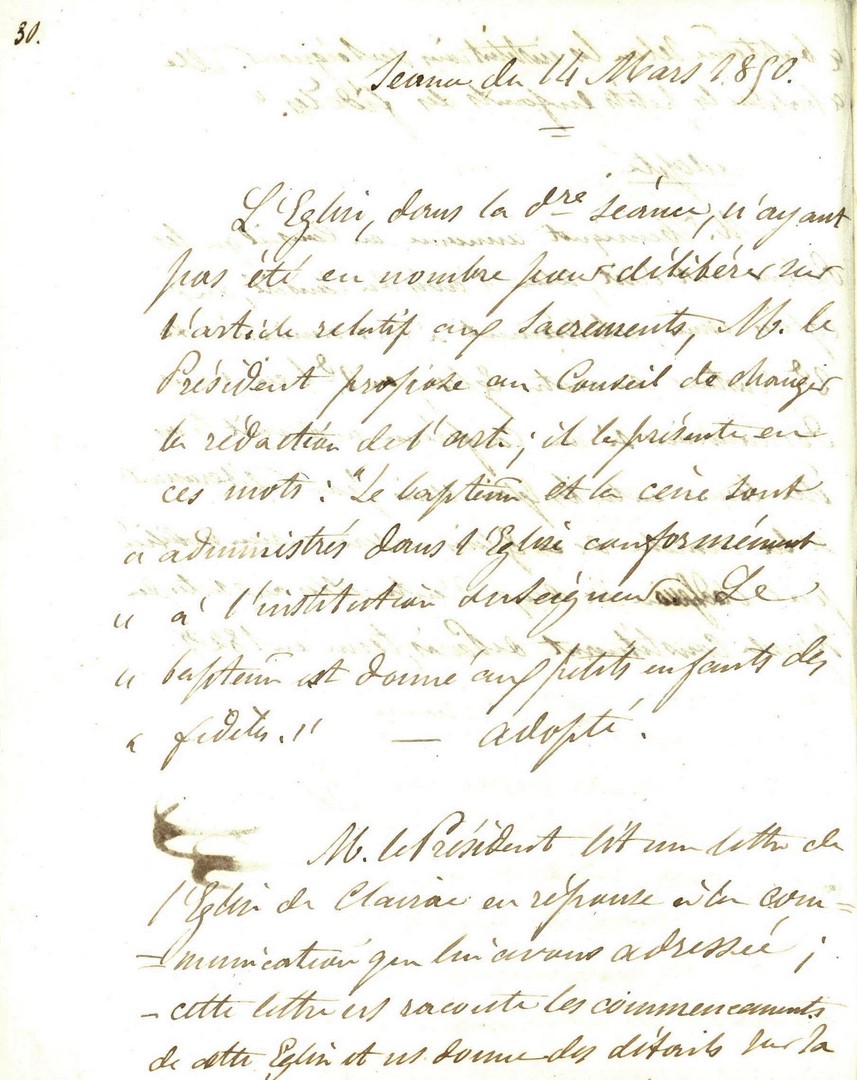 30.
Séance du 14 Mars 1850.
L'Eglise, dans la dre séance, n'ayant
pas été en nombre pour délibérer sur
l'article relatif aux Sacrements, M. le
Président propose au Conseil de changer
la rédaction de l'art.; il le présente en
ces mots : "Le baptême et la cène sont
" administrés dans l'Eglise conformément
" à l'institution du Seigneur. Le
" baptême est donné aux petits enfants des
" fidèles." — adopté.
M. le Président lit une lettre de
l'Eglise de Clairac en réponse à la com=
=munication que lui avons adressée ;
- cette lettre ns raconte les commencements
de cette Eglise et ns donne des détails sur la